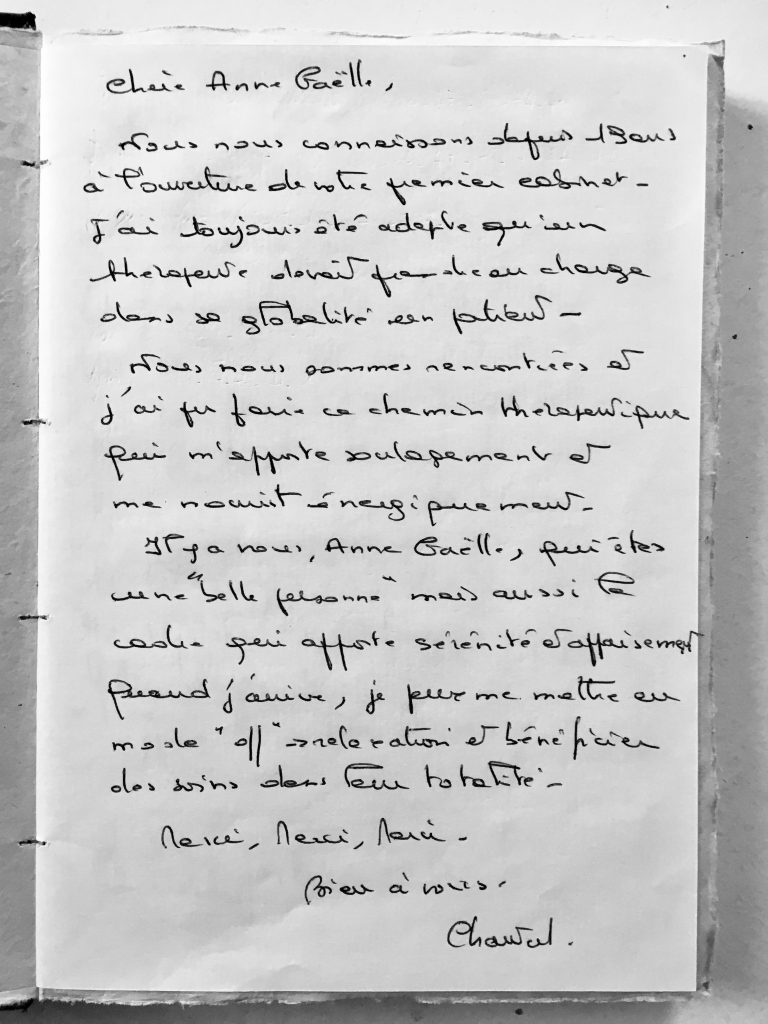 Chère Anne Gaëlle,
Nous nous connaissons depuis 13 ans
à l'ouverture de votre premier cabinet -
J'ai toujours été adepte qu'un
thérapeute devait prendre en charge
dans sa globalité un patient -
Nous nous sommes rencontrées et
j'ai pu faire ce chemin thérapeutique
qui m'apporte soulagement et
me nourrit énergiquement -
Il y a vous, Anne Gaëlle, qui êtes
une "belle personne" mais aussi le
cadre qui apporte sérénité et apaisement
Quand j'arrive, je peux me mettre en
mode "off" → relaxation et bénéficier
des soins dans leur totalité -
Merci, Merci, Merci -
Bien à vous.
Chantal.